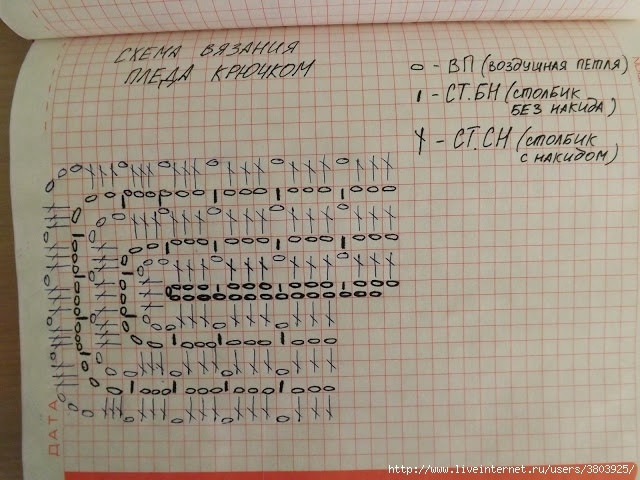 СХЕМА ВЯЗАНИЯ
ПЛЕДА КРЮЧКОМ
о - ВП (ВОЗДУШНАЯ ПЕТЛЯ)
ı - СТ.БН (СТОЛБИК
БЕЗ НАКИДА)
Ɏ - СТ.СН (СТОЛБИК
С НАКИДОМ)
ДАТА
http://www.liveinternet.ru/users/3803925/